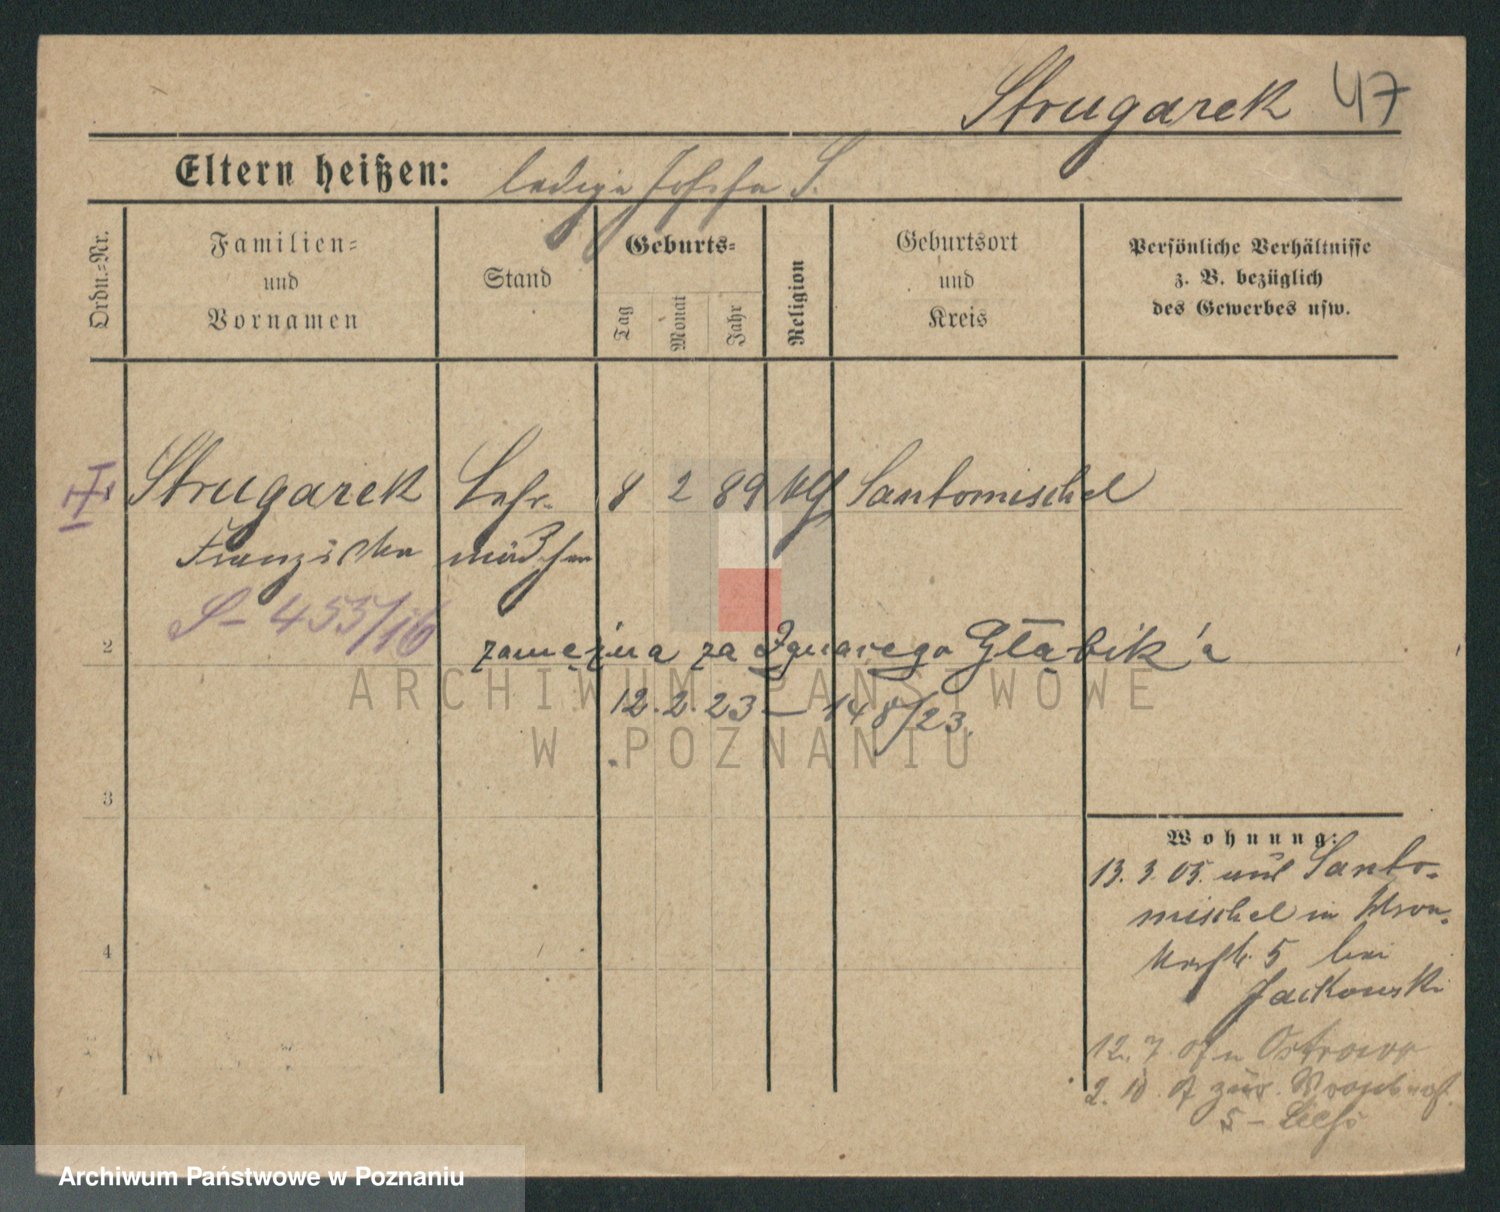 Strugarek 47
Eltern heißen: ledige Josefa S.
Ordn.=Nr.
Familien=
und
Vornamen
Stand
Geburts=
Tag
Monat
Jahr
Religion
Geburtsort
und
Kreis
Persönliche Verhältnisse
z. B. bezüglich
des Gewerbes usw.
Strugarek Lehr- 8 2 89 Santomischel
Franziska mädchen
S- 453/16
2
zamężna za Ignacego Głąbik'a
12.2.23 — 148/23.
ARCHIWUM PAŃSTWOWE
W POZNANIU
3
Wohnung:
13. 3. 05. aus Santo-
mischel in
5 bei
Jackowski
4
12. 7. 07 n Ostrowo
2. 10. 07 zur.
5 -
Archiwum Państwowe w Poznaniu